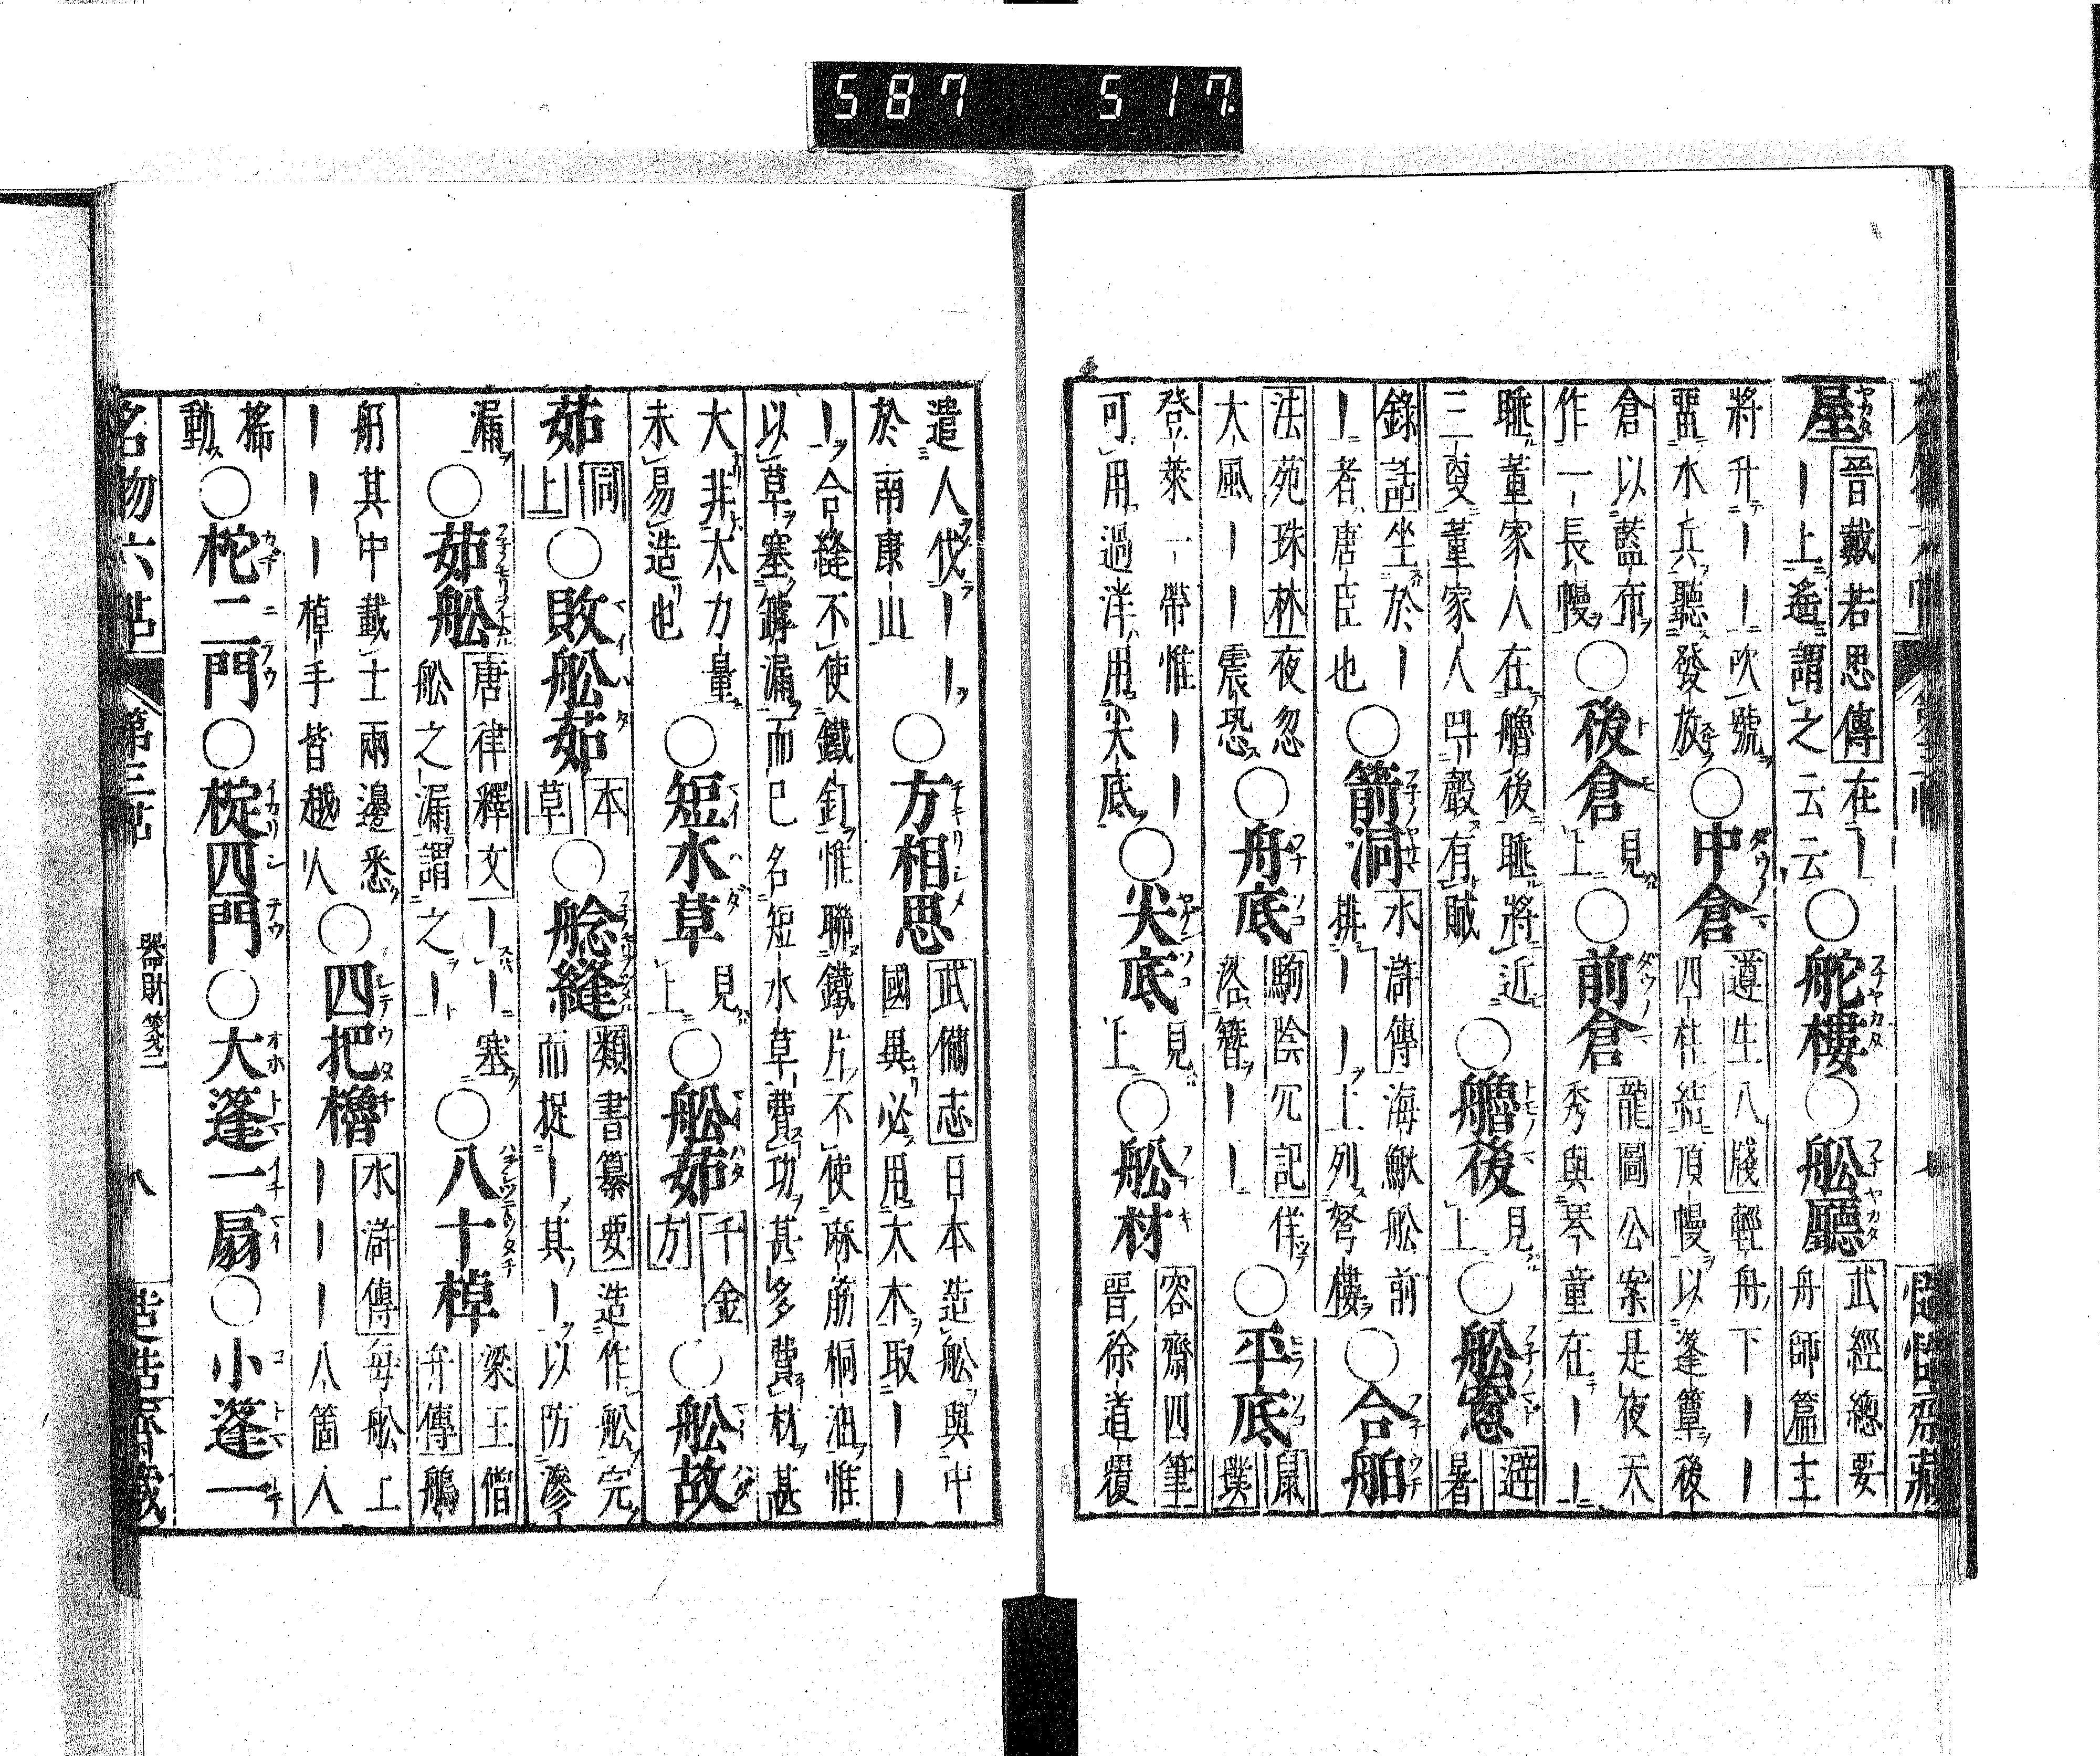 587 517
屋 晉戴若思傳 在｜
｜上遙謂之云云 ○舵樓 ○舩廳 武經總要
舟師篇 主
將升｜｜吹號
詈水兵聽發放 ○中倉 遵生八牋 輕舟下｜｜
四柱結頂幔以蓬簟後
倉以藍布
作一長幔 ○後倉 見上 ○前倉 龍圖公案 是夜天
秀與琴童在｜｜
睡董家人在艙後睡將近
三更董家人 有賊 ○艙後 見上 ○舩窓 避暑
錄話 坐於｜
｜者唐臣也 ○箭洞 水滸傳 海鰍舩前
排｜｜｜上列弩樓 ○合舶
法苑珠林 夜忽
大風｜｜震恐 ○舟底 駒陰冗記 佯
落簪｜｜ ○平底 鼠璞
登萊一帶惟｜｜
可用過洋用尖底 ○尖底 見上 ○舩材 容齋四筆
晉徐道覆
遣人伐｜｜
於南康山 ○方相思 武備志 日本造舩與中
國異必用大木取｜｜
｜合縫不使鐵釘惟聯鐵片不使麻筋桐油惟
以草塞罅漏而已名短水草費功甚多費材甚
大非大力量
未易造也 ○短水草 見上 ○舩茹 千金方 ○舩故
茹 同上 ○敗舩茹 本草 ○艌縫 類書纂要 造作舩完
而捉｜其｜以防滲
漏 ○茹舩 唐律釋文 ｜｜塞
舩之漏謂之｜ ○八十棹 梁王僧
弁傳 鵃
𦨣其中載士兩邊悉
｜｜｜棹手皆越人 ○四把櫓 水滸傳 每舩上
｜｜｜八箇人
搖
動 ○柁二門 ○椗四門 ○大蓬一扇 ○小蓬一
名物六帖 第三帖 器財箋二 八